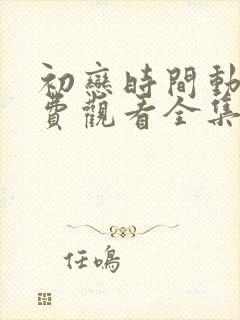 初戀時間動
費觀看全集
任鳴